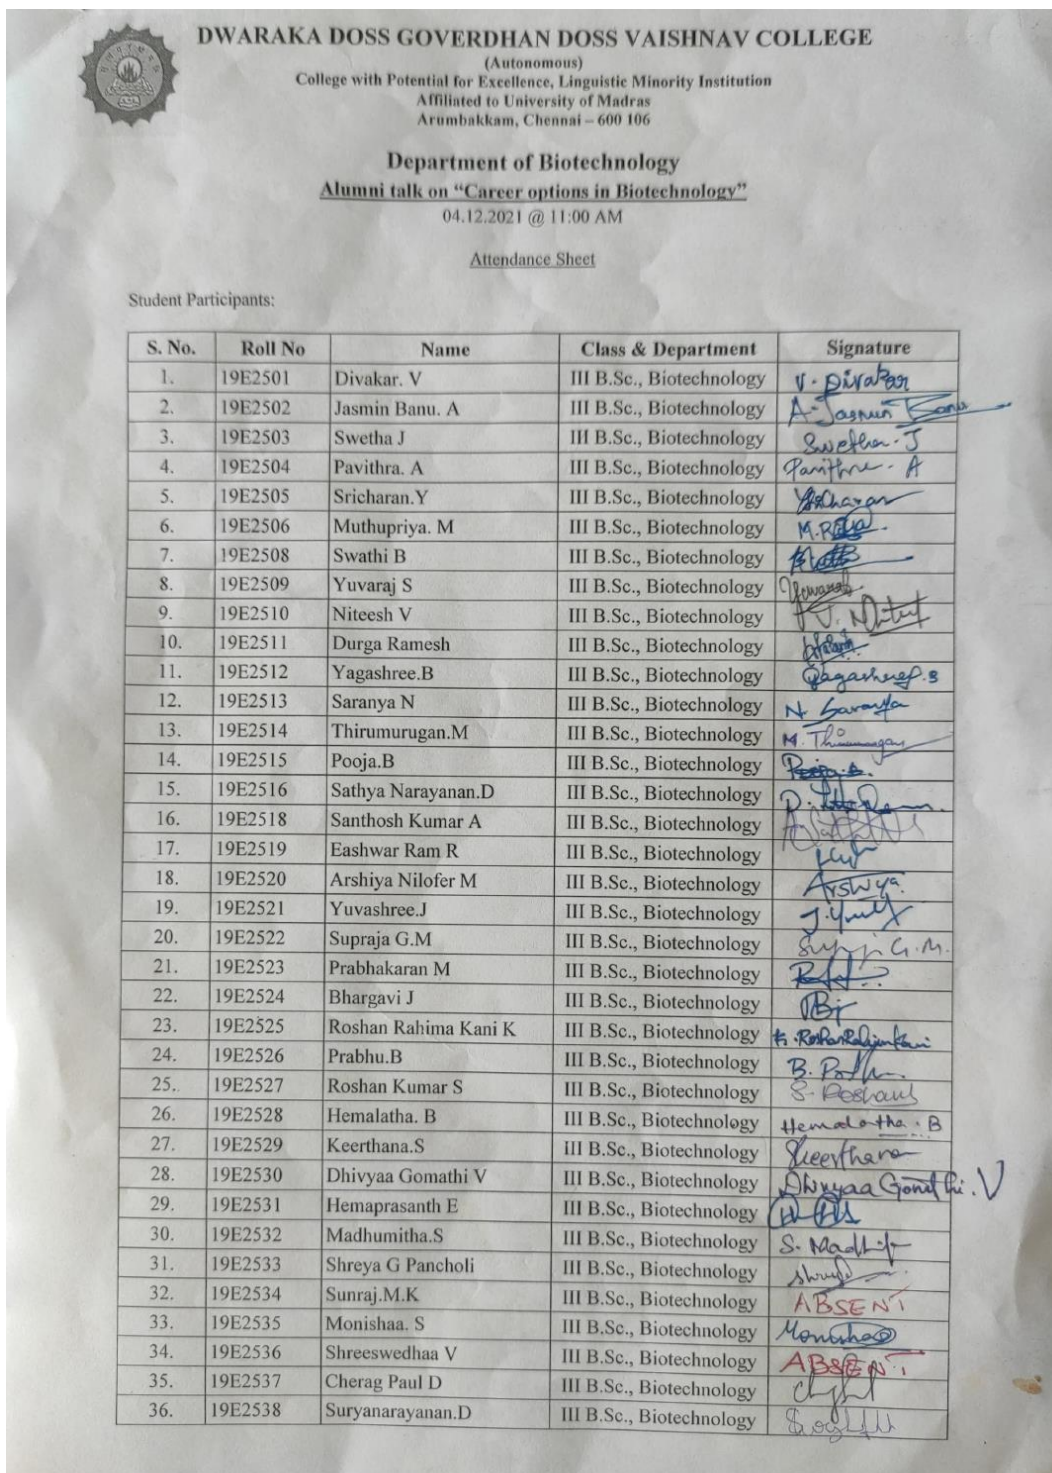 DWARAKA DOSS GOVERDHAN DOSS VAISHNAV COLLEGE
(Autonomous)
College with Potential for Excellence, Linguistic Minority Institution
Affiliated to University of Madras
Arumbakkam, Chennai – 600 106
Department of Biotechnology
Alumni talk on “Career options in Biotechnology”
04.12.2021 @ 11:00 AM
Attendance Sheet
Student Participants:
S. No. Roll No Name Class & Department Signature
1. 19E2501 Divakar. V III B.Sc., Biotechnology V. Divakar
2. 19E2502 Jasmin Banu. A III B.Sc., Biotechnology A. Jasmin Banu
3. 19E2503 Swetha J III B.Sc., Biotechnology Swetha. J
4. 19E2504 Pavithra. A III B.Sc., Biotechnology Pavithra. A
5. 19E2505 Sricharan.Y III B.Sc., Biotechnology
6. 19E2506 Muthupriya. M III B.Sc., Biotechnology
7. 19E2508 Swathi B III B.Sc., Biotechnology
8. 19E2509 Yuvaraj S III B.Sc., Biotechnology
9. 19E2510 Niteesh V III B.Sc., Biotechnology
10. 19E2511 Durga Ramesh III B.Sc., Biotechnology
11. 19E2512 Yagashree.B III B.Sc., Biotechnology Yagashree.B
12. 19E2513 Saranya N III B.Sc., Biotechnology N. Saranya
13. 19E2514 Thirumurugan.M III B.Sc., Biotechnology M. Thirumurugan
14. 19E2515 Pooja.B III B.Sc., Biotechnology Pooja.B.
15. 19E2516 Sathya Narayanan.D III B.Sc., Biotechnology
16. 19E2518 Santhosh Kumar A III B.Sc., Biotechnology
17. 19E2519 Eashwar Ram R III B.Sc., Biotechnology
18. 19E2520 Arshiya Nilofer M III B.Sc., Biotechnology Arshiya.
19. 19E2521 Yuvashree.J III B.Sc., Biotechnology
20. 19E2522 Supraja G.M III B.Sc., Biotechnology G.M.
21. 19E2523 Prabhakaran M III B.Sc., Biotechnology
22. 19E2524 Bhargavi J III B.Sc., Biotechnology
23. 19E2525 Roshan Rahima Kani K III B.Sc., Biotechnology K. Roshan Rahima Kani
24. 19E2526 Prabhu.B III B.Sc., Biotechnology
25. 19E2527 Roshan Kumar S III B.Sc., Biotechnology
26. 19E2528 Hemalatha. B III B.Sc., Biotechnology Hemalatha. B
27. 19E2529 Keerthana.S III B.Sc., Biotechnology
28. 19E2530 Dhivyaa Gomathi V III B.Sc., Biotechnology Dhivyaa Gomathi. V
29. 19E2531 Hemaprasanth E III B.Sc., Biotechnology
30. 19E2532 Madhumitha.S III B.Sc., Biotechnology
31. 19E2533 Shreya G Pancholi III B.Sc., Biotechnology
32. 19E2534 Sunraj.M.K III B.Sc., Biotechnology ABSENT
33. 19E2535 Monishaa. S III B.Sc., Biotechnology Monishaa
34. 19E2536 Shreeswedhaa V III B.Sc., Biotechnology ABSENT
35. 19E2537 Cherag Paul D III B.Sc., Biotechnology
36. 19E2538 Suryanarayanan.D III B.Sc., Biotechnology